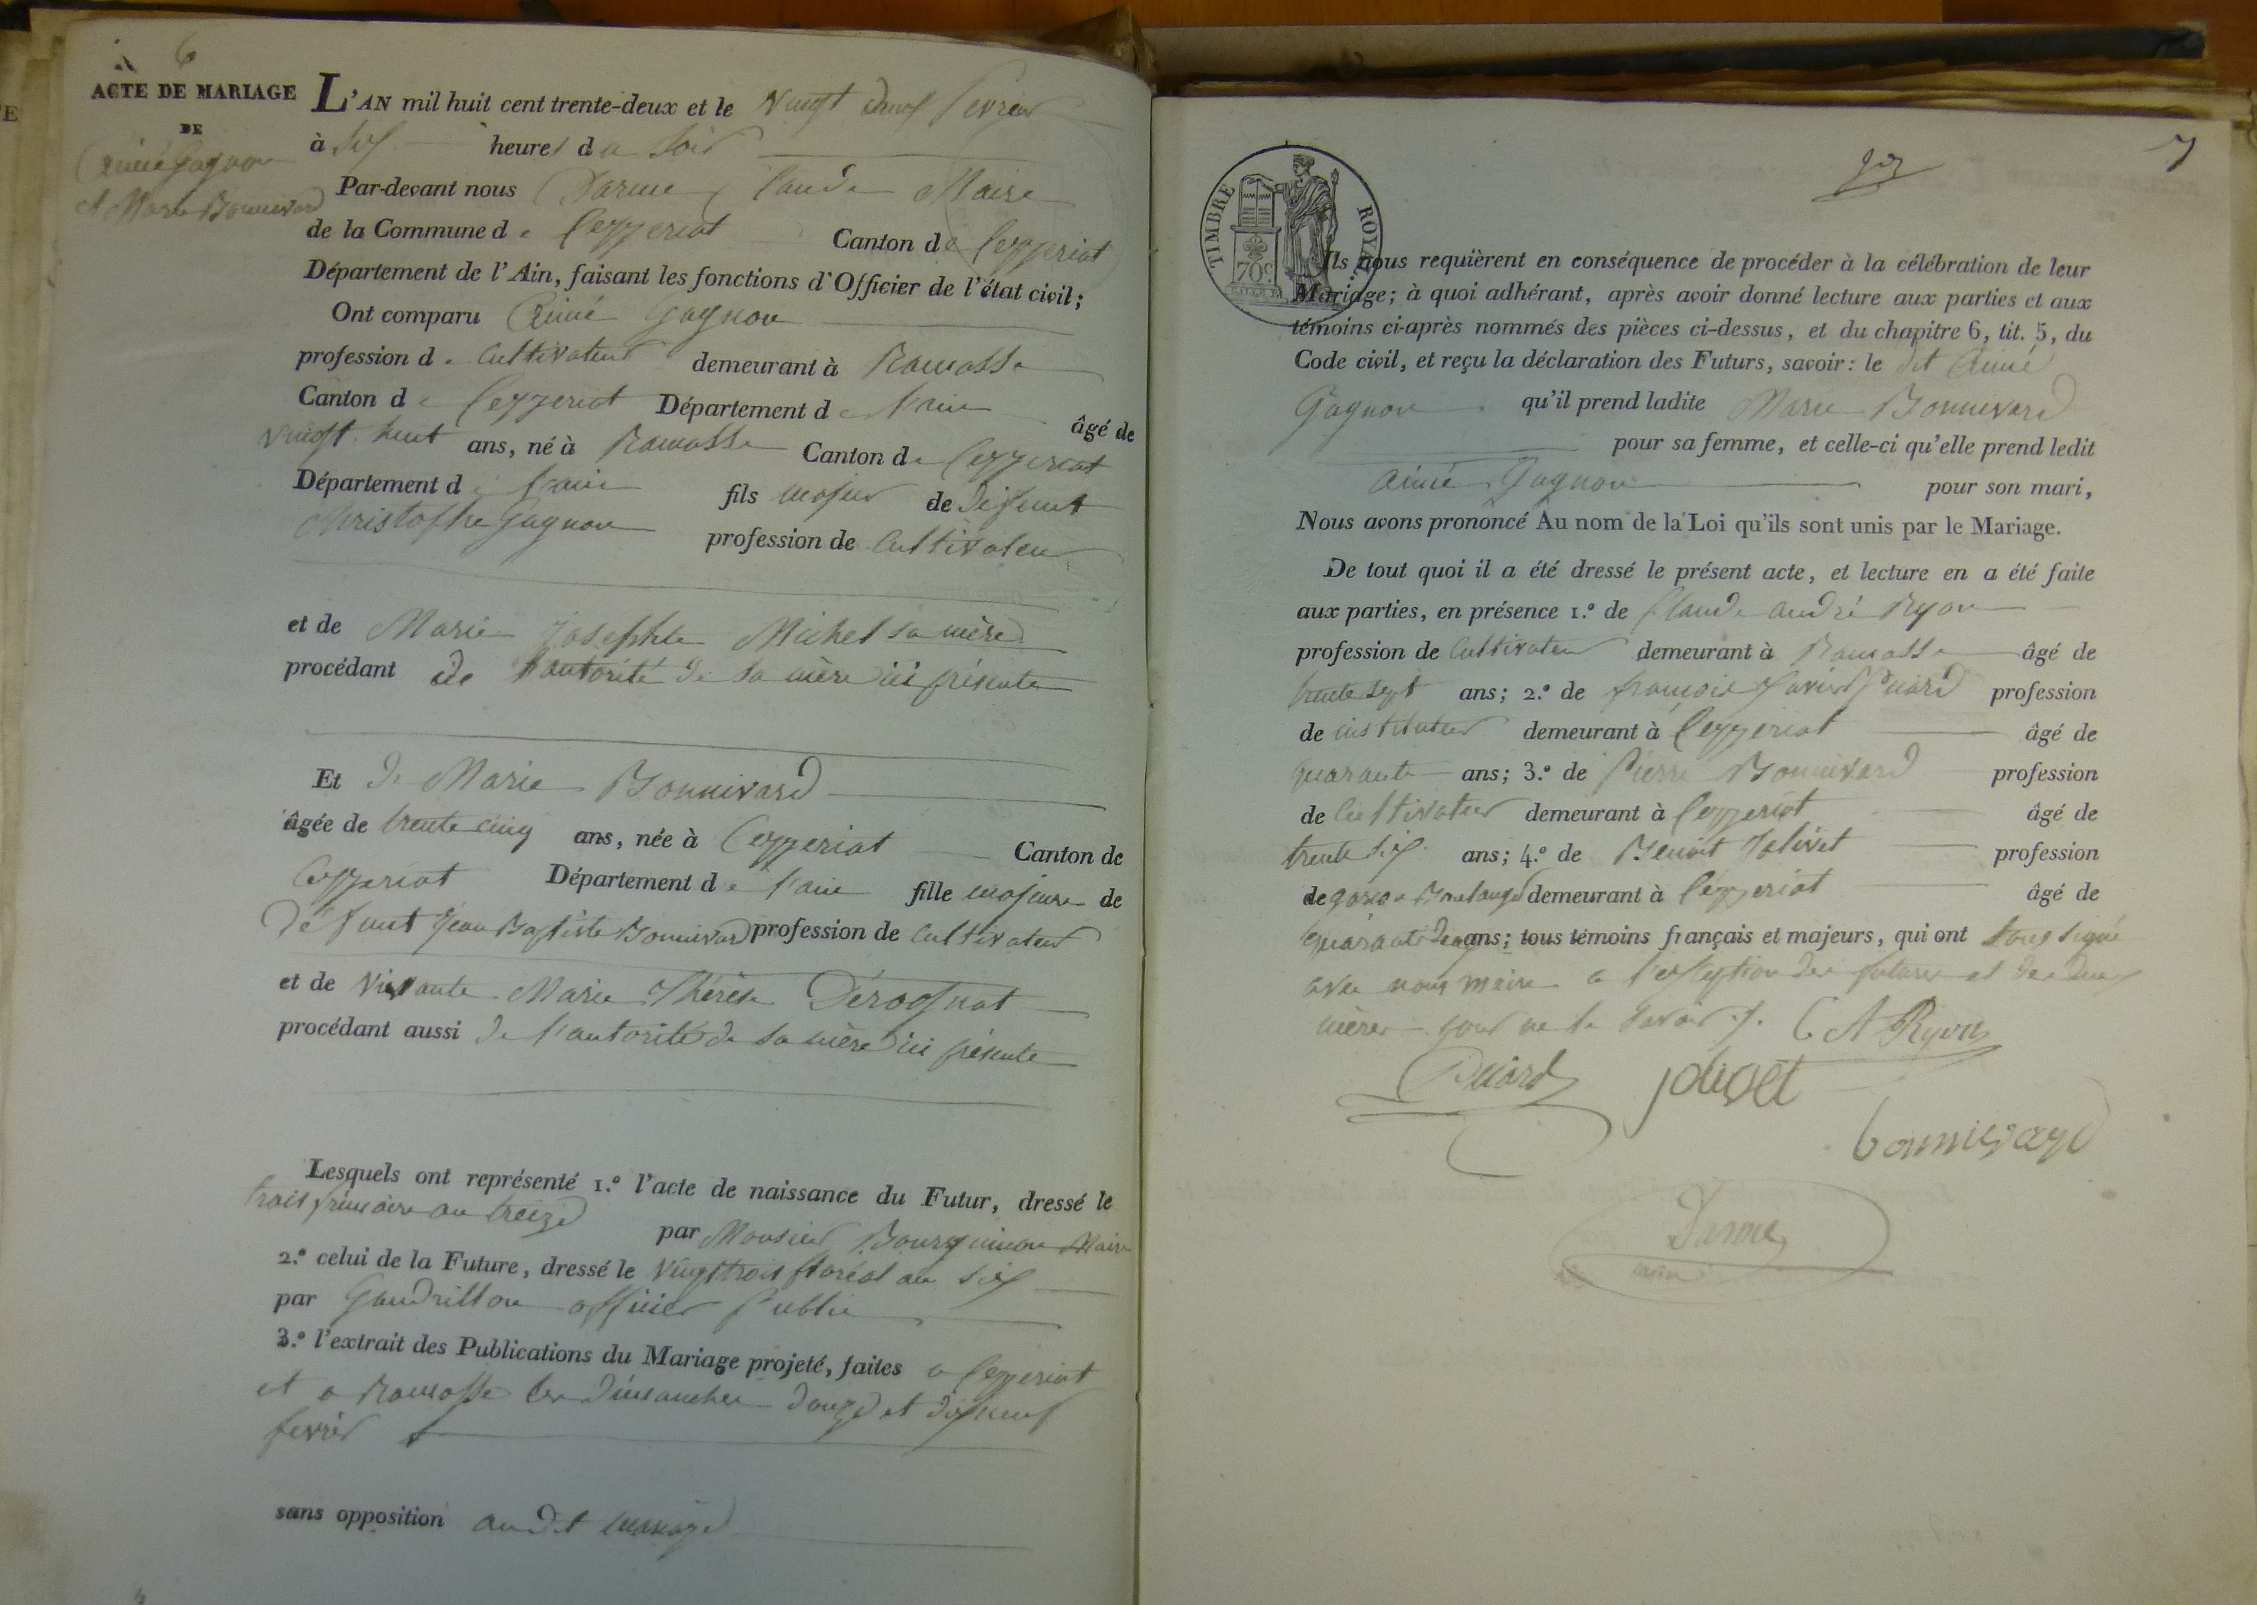 6
ACTE DE MARIAGE
DE
Aimé Gagnon
et Marie Bonnivard
L'AN mil huit cent trente-deux et le vingt neuf fevrier
à six heures du soir
Par-devant nous Darme Claude Maire
de la Commune de Ceyzeriat Canton de Ceyzeriat
Département de l'Ain, faisant les fonctions d'Officier de l'état civil;
Ont comparu Aimé Gagnon
profession de Cultivateur demeurant à Ramasse
Canton de Ceyzeriat Département de l'ain âgé de
vingt huit ans, né à Ramasse Canton de Ceyzeriat
Département de l'ain fils majeur de Défunt
Christophe Gagnon profession de Cultivateur
et de Marie Josephte Michel sa mère
procédant de l'autorité de sa mère ici présente
Et de Marie Bonnivard
âgée de trente cinq ans, née à Ceyzeriat Canton de
Ceyzeriat Département de l'ain fille majeure de
Défunt Jean Baptiste Bonnivard profession de Cultivateur
et de vivante Marie Thérèse Dérognat
procédant aussi de l'autorité de sa mère ici présente
Lesquels ont représenté 1.º l'acte de naissance du Futur, dressé le
trois frimaire an treize par Monsieur Bourguinon Maire
2.º celui de la Future, dressé le vingt trois floréal an six
par Gaudrillon officier Public
3.º l'extrait des Publications du Mariage projeté, faites a Ceyzeriat
et a Ramasse les Dimanches douze et dixneuf
fevrier
sans opposition audit mariage
7
TIMBRE ROYAL
70 c.
Ils nous requièrent en conséquence de procéder à la célébration de leur
Mariage; à quoi adhérant, après avoir donné lecture aux parties et aux
témoins ci-après nommés des pièces ci-dessus, et du chapitre 6, tit. 5, du
Code civil, et reçu la déclaration des Futurs, savoir: le dit Aimé
Gagnon qu'il prend ladite Marie Bonnivard
pour sa femme, et celle-ci qu'elle prend ledit
aimé Gagnon pour son mari,
Nous avons prononcé Au nom de la Loi qu'ils sont unis par le Mariage.
De tout quoi il a été dressé le présent acte, et lecture en a été faite
aux parties, en présence 1.º de Claude andré Ryon
profession de Cultivateur demeurant à Ramasse âgé de
trente sept ans; 2.º de françois Xavier Puard profession
de instituteur demeurant à Ceyzeriat âgé de
quarante ans; 3.º de Pierre Bonnivard profession
de Cultivateur demeurant à Ceyzeriat âgé de
trente six ans; 4.º de Benoit Jolivet profession
de garson Boulanger demeurant à Ceyzeriat âgé de
quarante deux ans; tous témoins français et majeurs, qui ont tous signé
avec nous maire a l'exseption des futurs et des deux
mères pour ne le savoir /. C A Ryon
Puard jolivet
bonnivard
Darme
maire